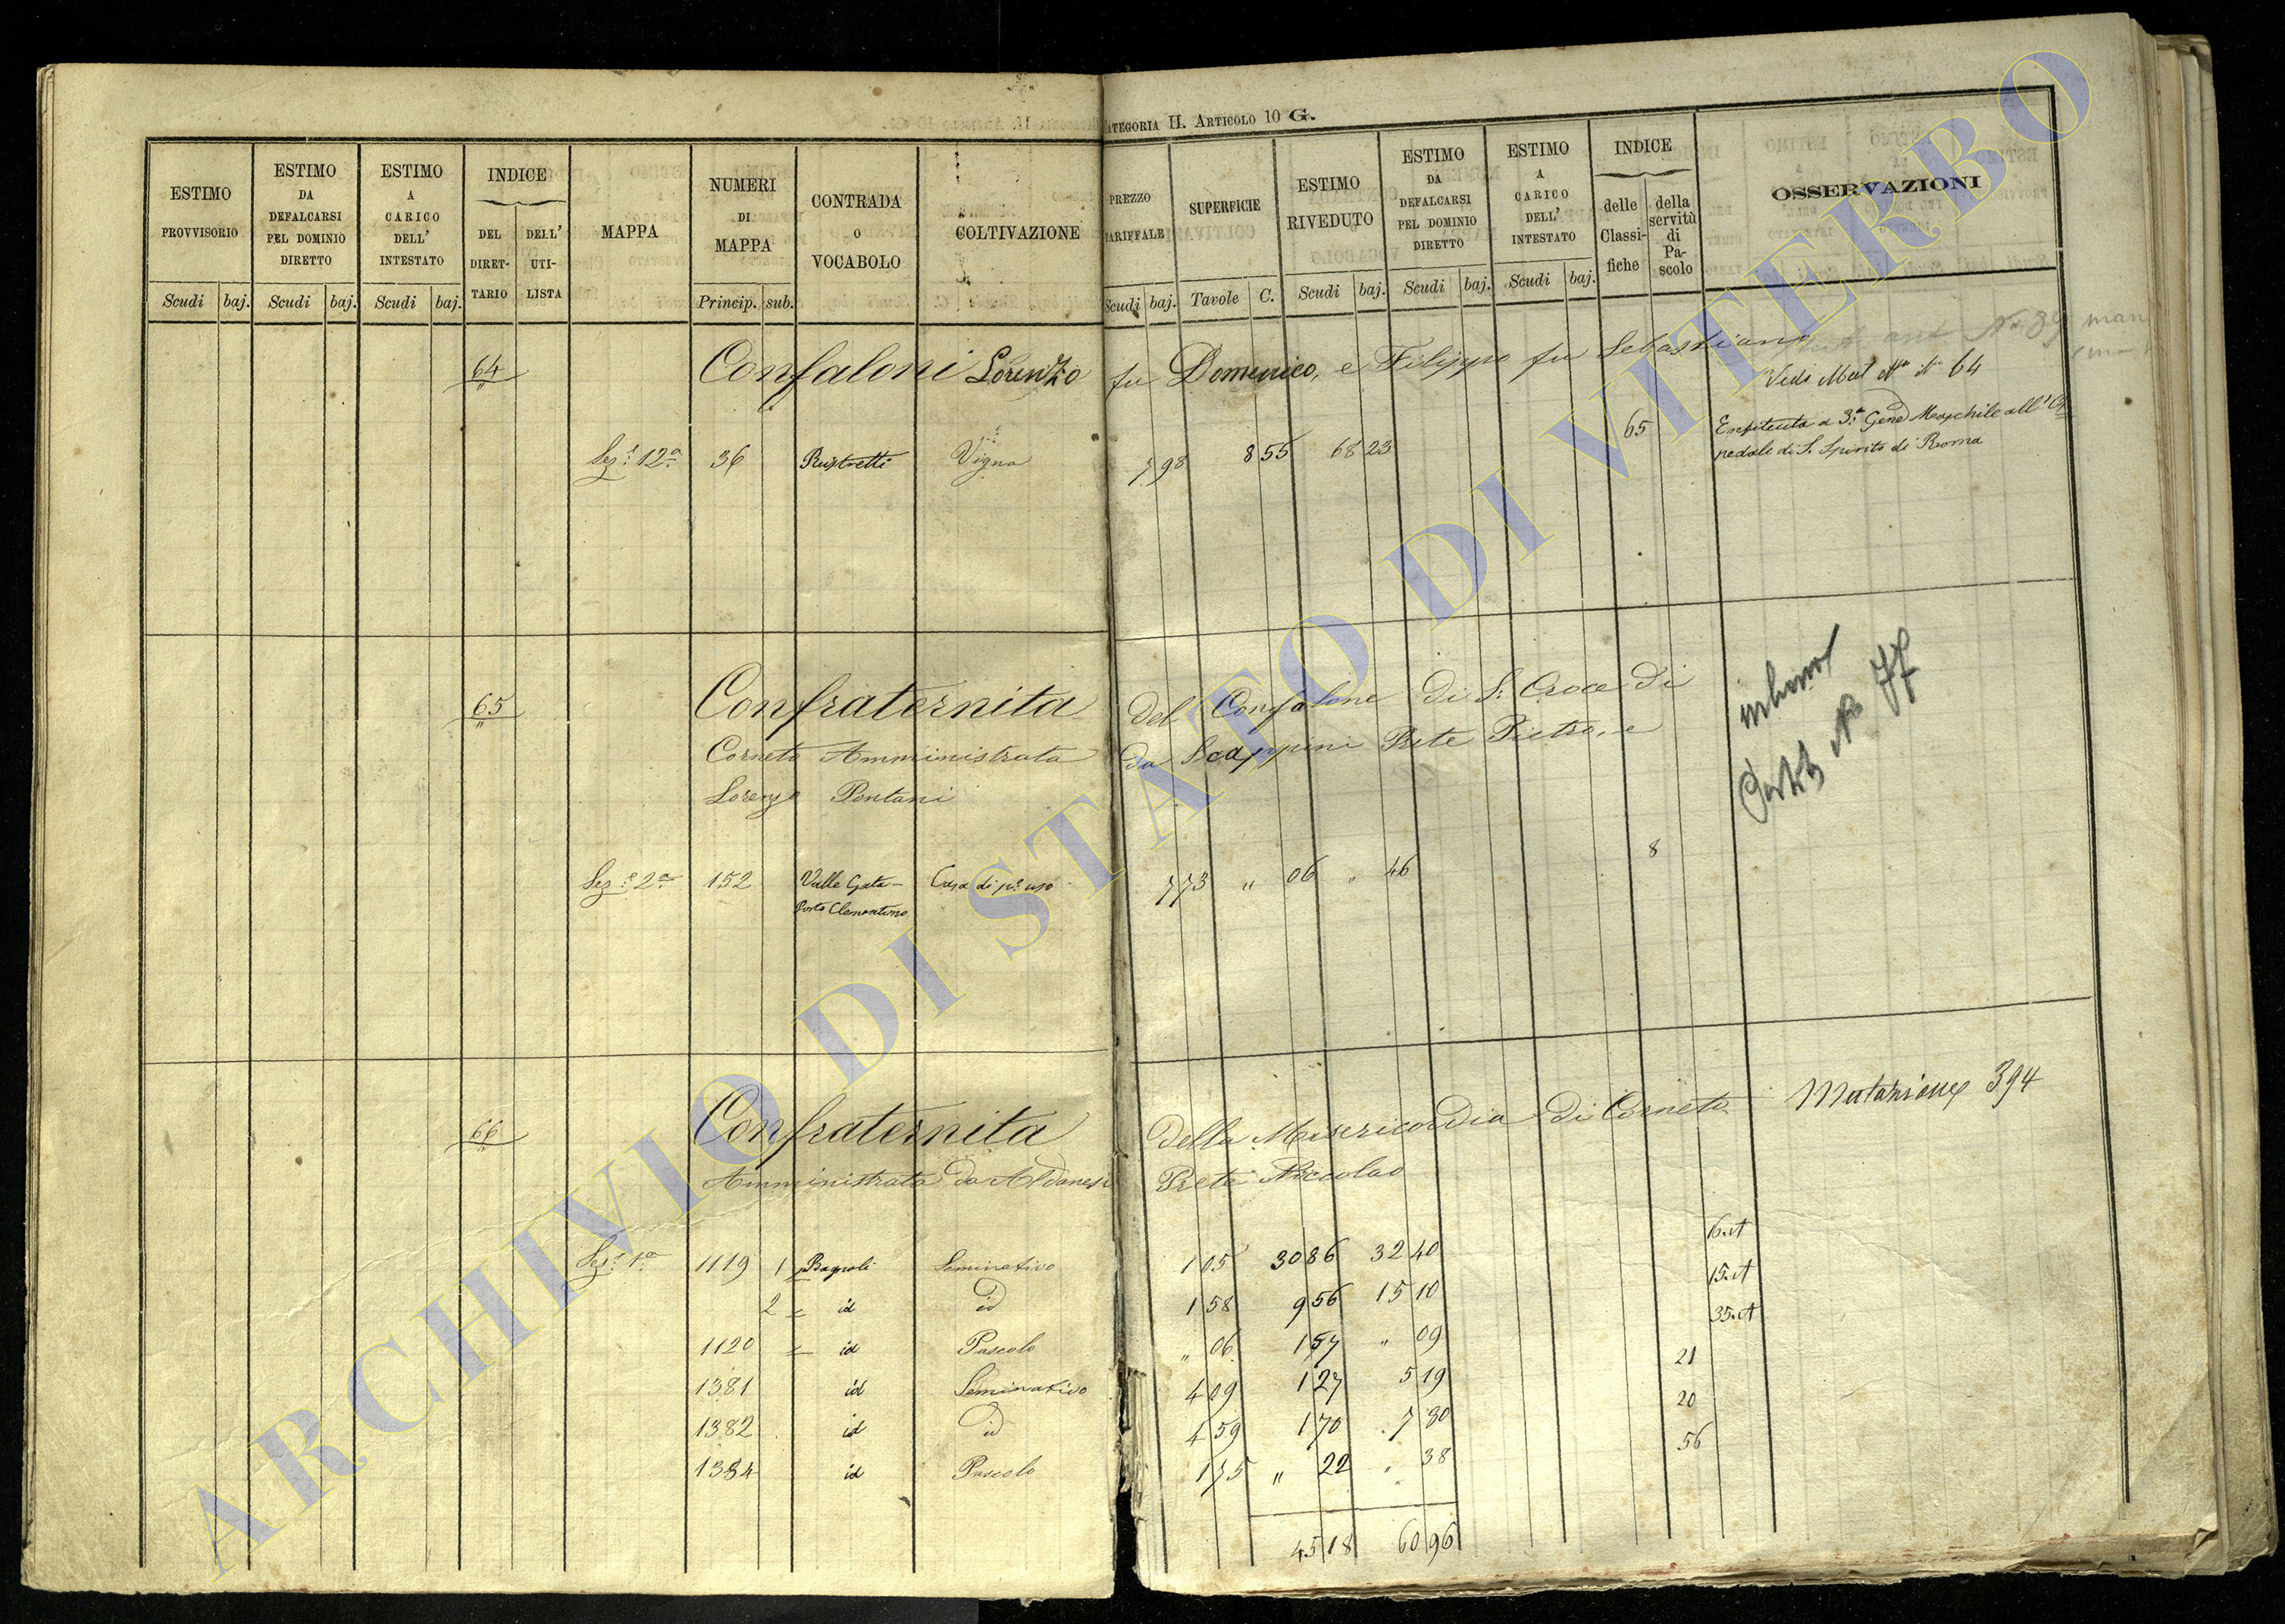 CATEGORIA II. ARTICOLO 10 G.
ESTIMO PROVVISORIO
Scudi baj.
ESTIMO DA DEFALCARSI PEL DOMINIO DIRETTO
Scudi baj.
ESTIMO A CARICO DELL' INTESTATO
Scudi baj.
INDICE
DEL DIRETTARIO
DELL' UTILISTA
MAPPA
NUMERI DI MAPPA
Princip. sub.
CONTRADA O VOCABOLO
COLTIVAZIONE
PREZZO TARIFFALE
Scudi baj.
SUPERFICIE
Tavole C.
ESTIMO RIVEDUTO
Scudi baj.
ESTIMO DA DEFALCARSI PEL DOMINIO DIRETTO
Scudi baj.
ESTIMO A CARICO DELL' INTESTATO
Scudi baj.
INDICE
delle Classifiche
della servitù di Pascolo
OSSERVAZIONI
64 Confaloni Lorenzo fu Domenico, e Filippo fu Sebastiano
Vedi Mat N° 64
Sez.e 12a 36 Ristretti Vigna 7 98 8 55 68 23 65 Enfiteuta a 3a Gene Maschile all' Os
pedale di S. Spirito di Roma
65 Confraternita del Confalone di S. Croce di
Corneto Amministrata da Scappini Prete Pietro, e
Lorenzo Pontani
Sez.e 2a 152 Valle Gata Casa di p.o uso 7 73 " 06 " 46 8
Porto Clementino
66 Confraternita della Misericordia di Corneto Mutazione 394
Amministrata da Aldanesi Prete Niccolao
Sez.e 1a 1119 1 Bagnoli Seminativo 1 05 30 86 32 40 16.A
2 = id id 1 58 9 56 15 10 15.A
1120 = id Pascolo " 06 1 57 " 09 35.A
1381 id Seminativo 4 09 1 27 5 19 21
1382 id id 4 59 1 70 7 80 20
1384 id Pascolo 1 75 " 22 " 38 56
45 18 60 96
ARCHIVIO DI STATO DI VITERBO